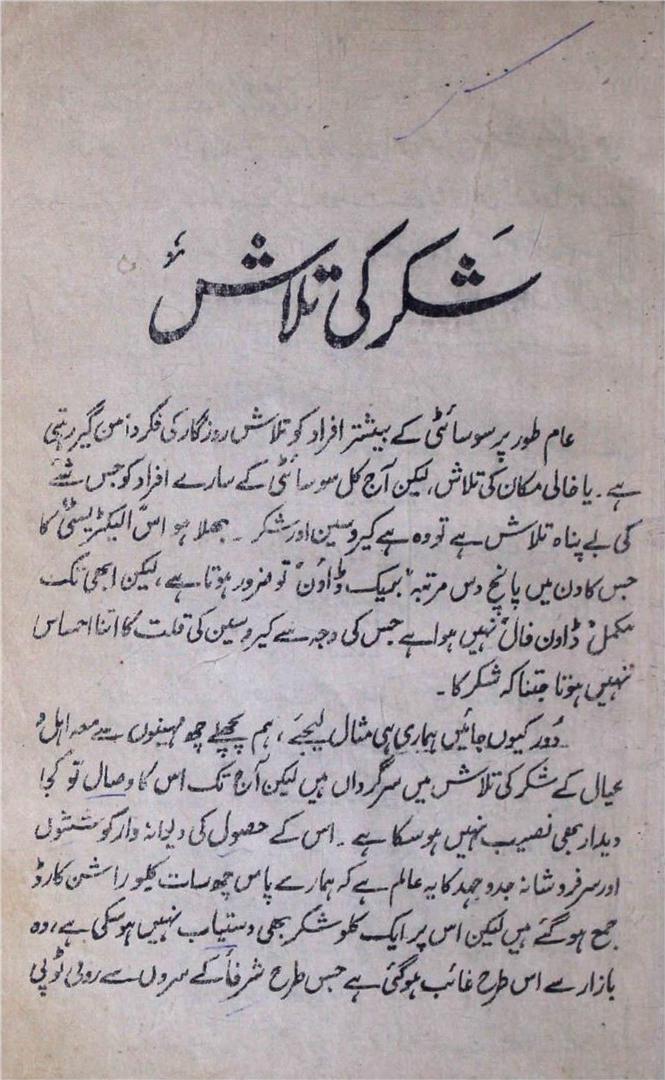 شکر کی تلاش
عام طور پر سوسائٹی کے بیشتر افراد کو تلاش روزگار کی فکر دامن گیر رہتی
ہے۔ یا خالی مکان کی تلاش، لیکن آج کل سوسائٹی کے سارے افراد کو جس شے
کی بے پناہ تلاش ہے تو وہ ہے کیروسین اور شکر ۔ بھلا ہو اس "الیکٹریسٹی" کا
جس کا دن میں پانچ دس مرتبہ "بریک ڈاؤن" تو ضرور ہوتا ہے، لیکن ابھی تک
مکمل "ڈاون فال" نہیں ہوا ہے جس کی وجہ سے کیروسین کی قلت کا اتنا احساس
نہیں ہوتا جتنا کہ شکر کا۔
دُور کیوں جائیں ہماری ہی مثال لیجئے، ہم پچھلے چھ مہینوں سے معہ اہل و
عیال کے شکر کی تلاش میں سرگرداں ہیں لیکن آج تک اس کا وصال تو کجا
دیدار بھی نصیب نہیں ہو سکا ہے ۔ اس کے حصول کی دیوانہ وار کوششوں
اور سرفروشانہ جدوجہد کا یہ عالم ہے کہ ہمارے پاس چھ سات کلو راشن کارڈ
جمع ہو گئے ہیں لیکن اس پر ایک کلو شکر بھی دستیاب نہیں ہو سکی ہے، وہ
بازار سے اس طرح غائب ہو گئی ہے جس طرح شرفأ کے سروں سے رومی ٹوپی